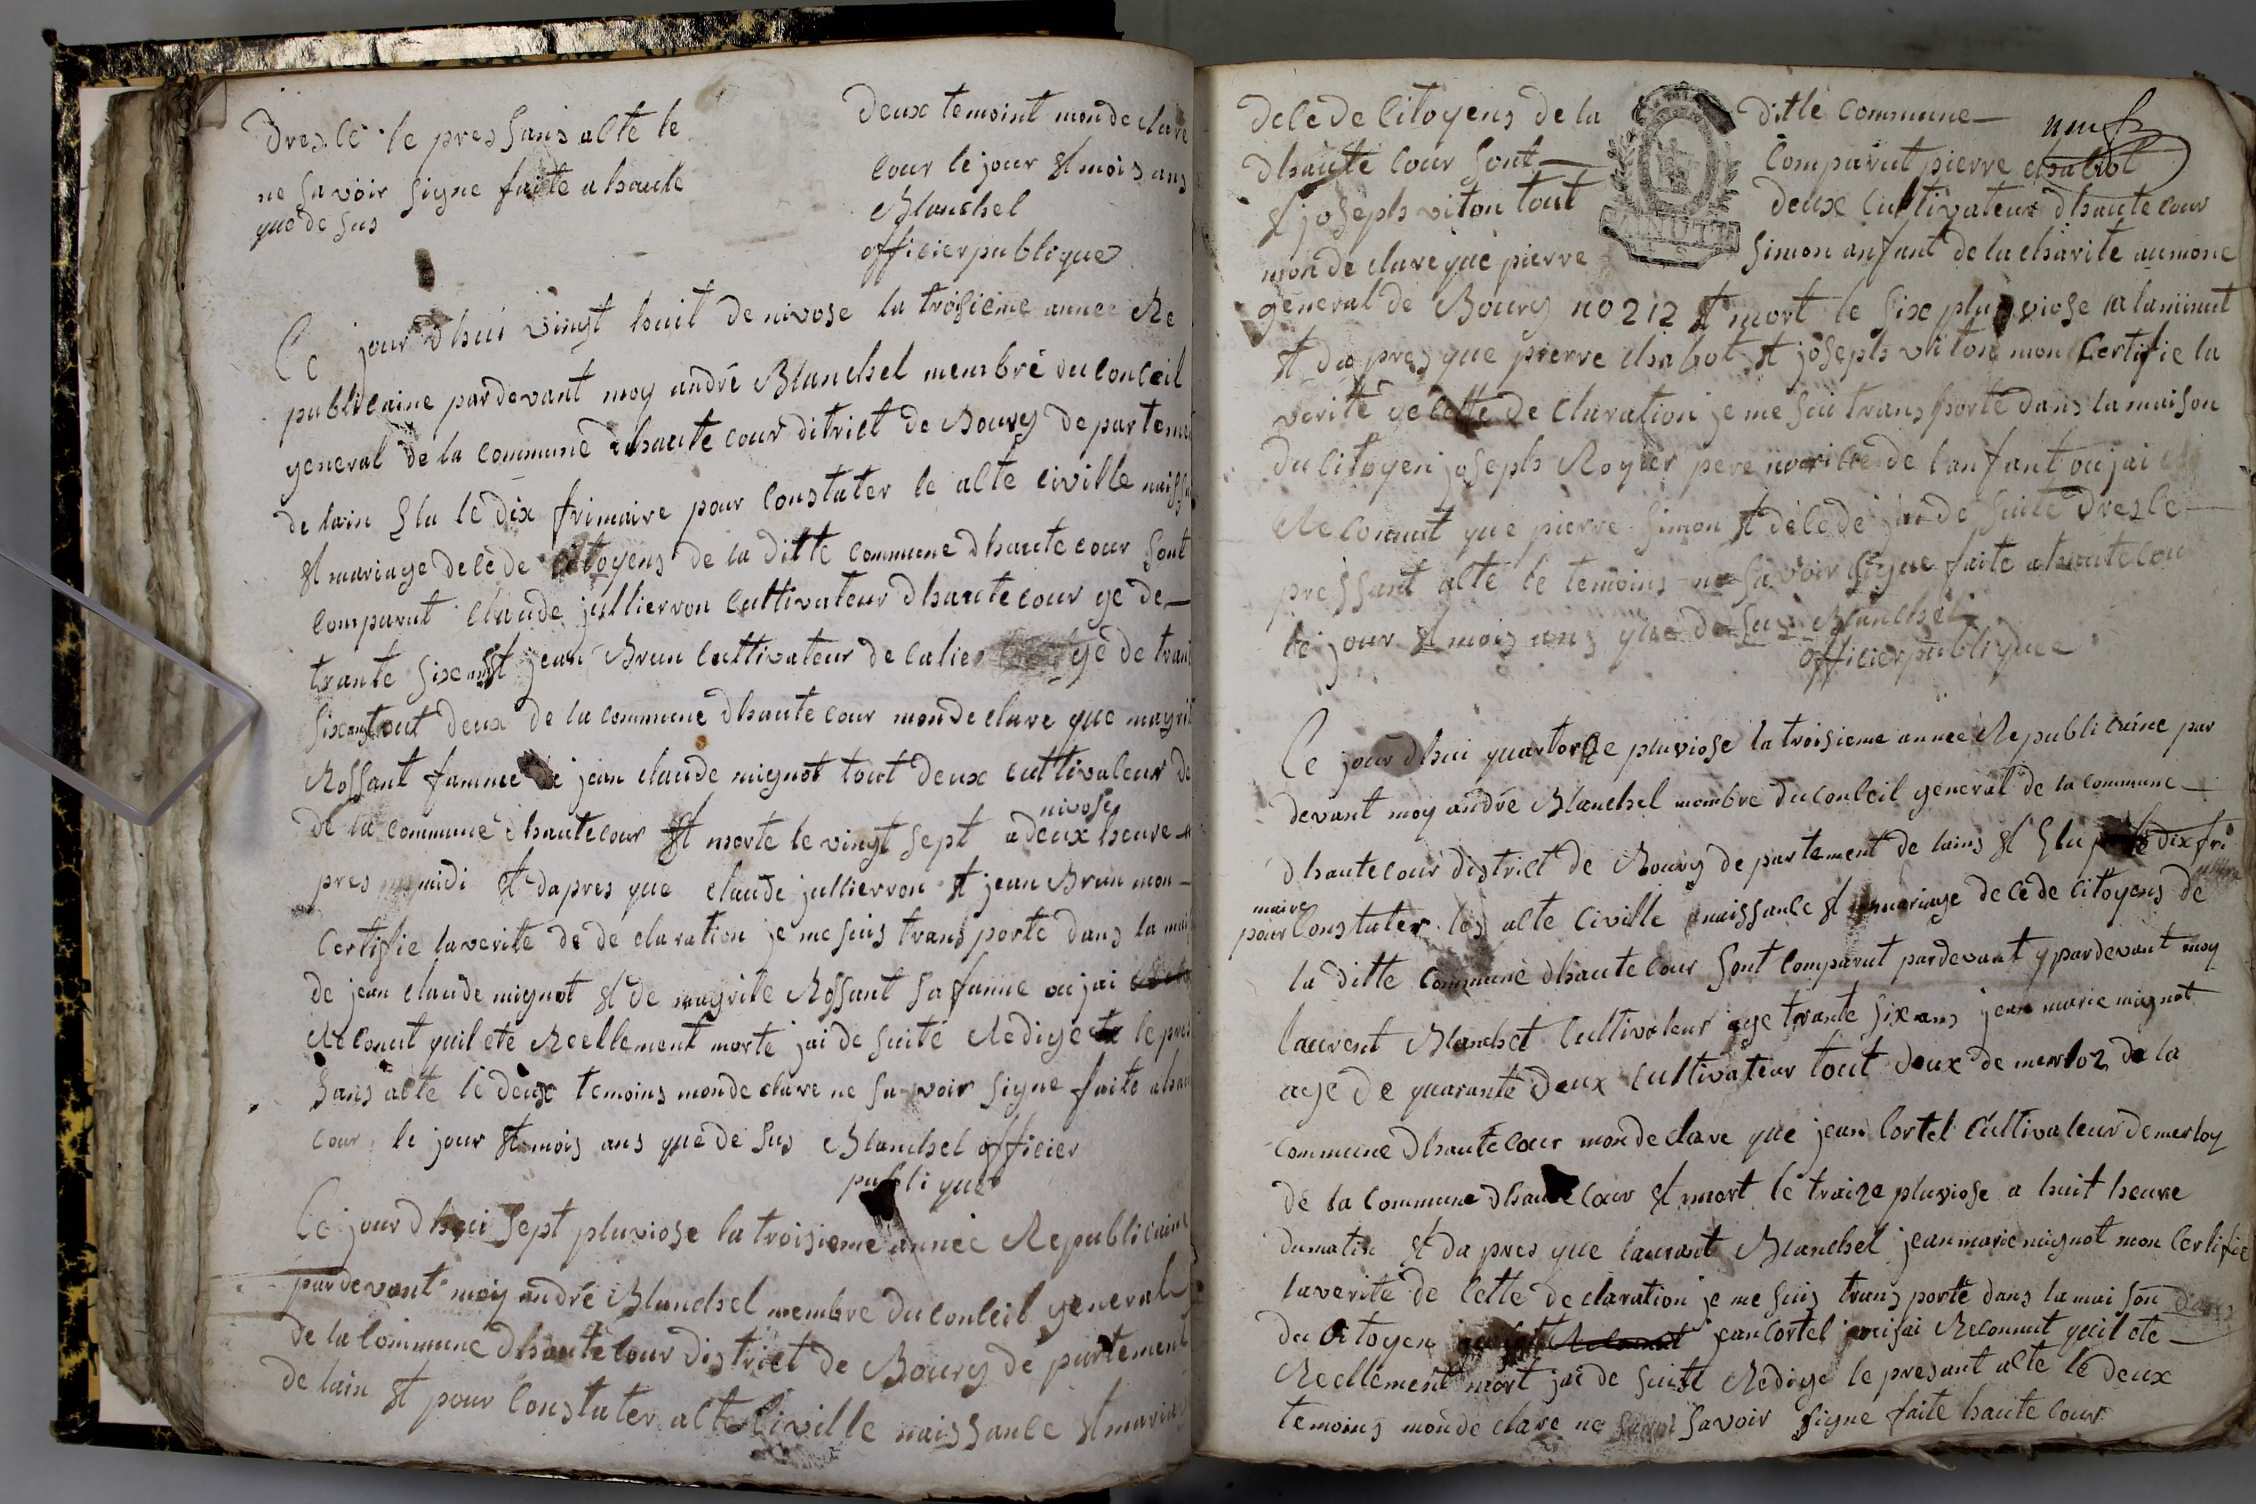 dresse le pres sans acte le deux temoint mon declare
ne savoir signe faite a haute cour le jour et mois ans
que de sus Blanchel
officier publique
Ce jour dhui vingt huit de nivose la troisieme annee Re
publicaine pardevant moy andré Blanchel membre du conceil
general de la commune dhaute cour ditrict de Bourg departeme
de lain Elu le dix frimaire pour constater le acte civille naissa
et mariage decede citoyens de la ditte commune dhaute cour sont
comparut claude jullierron cultivateur dhaute cour ge de
trante six ans et jean Brun cultivateur de calie ge de tran
six ans tout deux de la commune dhaute cour mon declare que magrit
Rossant famme de jean claude mignot tout deux cultivateur de
de la commune dhautecour et morte le vingt sept nivose a deux heure a
pres midi et dapres que claude jullierron et jean Brun mon
certifie la verite de declaration je me suis trans porte dans la mais
de jean claude mignot et de magrite Rossant sa famme ou jai
Reconut quil ete Reellement morte jai de suite Redige le pres
sans acte le deux temoins mon declare ne sa voir signe faite a hau
cour le jour et mois ans que de sus Blanchel officier
publi que
Ce jour dhui sept pluviose la troisieme année Republicaine
pardevant moy andré Blanchel membre du conceil general
de la commune dhaute cour district de Bourg de partement
de lain et pour constater acte civille naissance et maria
neuf
decede citoyens de la ditte commune
dhaute cour sont comparut pierre chabot
et joseph viton tout deux cultivateur dhaute cour
mon declare que pierre simon anfant de la charite aumone
general de Bourg no 212 et mort le six pluviose a la minut
et da pres que pierre chabot et joseph viton mon certifie la
verité de cette declaration je me sui trans porte dans la maison
du citoyen joseph Royer pere nouricie de lanfant ou jai
Reconnut que pierre simon et decede jai de suite dresse
pressant acte le temoins ne savoir signe faite a haute cou
le jour et mois ans que de sus Blanchel
officier publique
Ce jour dhui quartorze pluviose la troisieme annee Republicaine par
devant moy andré Blanchel membre du conceil general de la commune
dhautecour district de Bourg departement de lains et Elu le dix fri
maire
pour constater les acte civille naissance et mariage decede citoyens de
la ditte commune dhaute cour sont comparut pardevant y pardevant moy
laurent Blanchet cultivateur age trante six ans jean marie mignot
age de quarante deux cultivateur tout deux de merloz de la
commune dhaute cour mon declare que jean cortel cultivateur de merloy
de la commune dhaute cour et mort le traize pluviose a huit heure
du matin et da pres que laurant Blanchel jean marie mignot mon certifie
la verite de cette declaration je me suis trans porte dans la mai son dans
du citoyen Reconnut jean cortel Reconnut quil ete
Reellement mort jai de suite Redige le presant acte le deux
temoins mon declare ne savoir signe faite haute cour